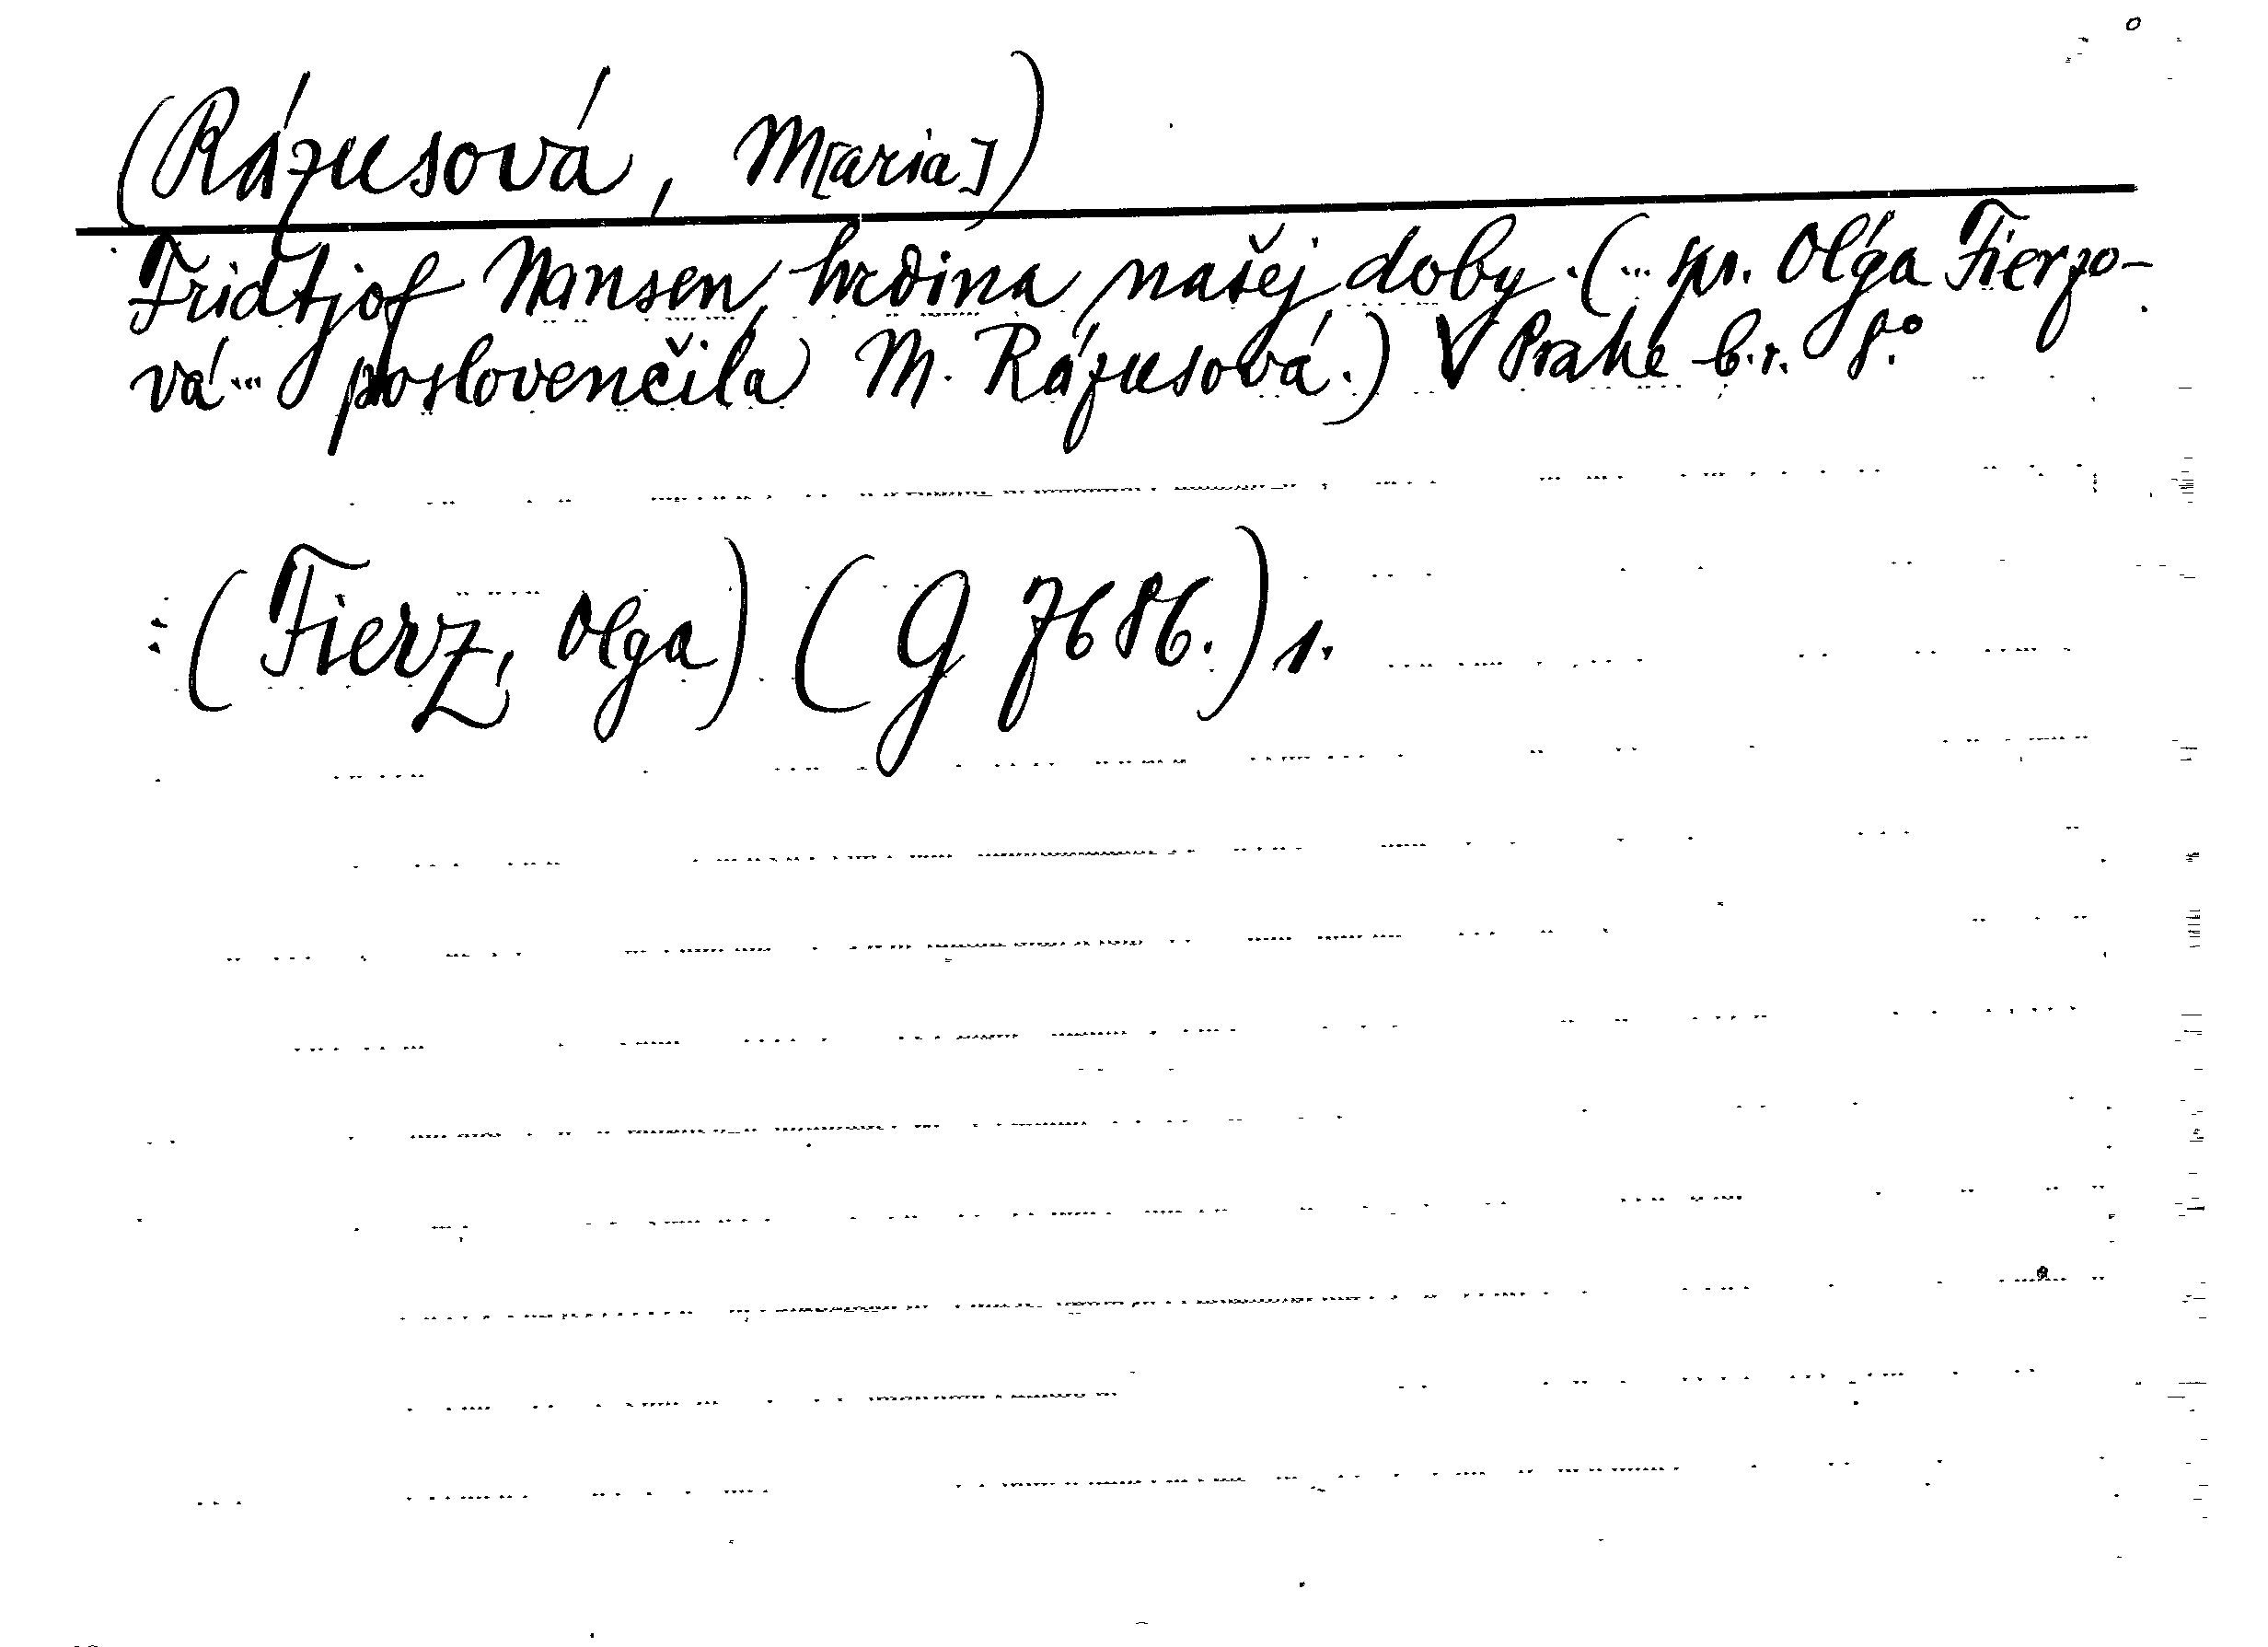 (Rázusová, M[aria])
Fridtjof Nansen, hrdina našej doby. (... spr. Oľga Fierzo-
vá ... poslovenčila M. Rázusová.) V Prahe b.r. 8°.
: (Fierz, Olga) (G 7686.) 1.